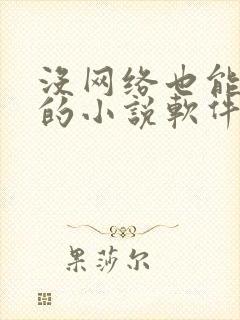 没网络也能
的小説軟件
果莎尔